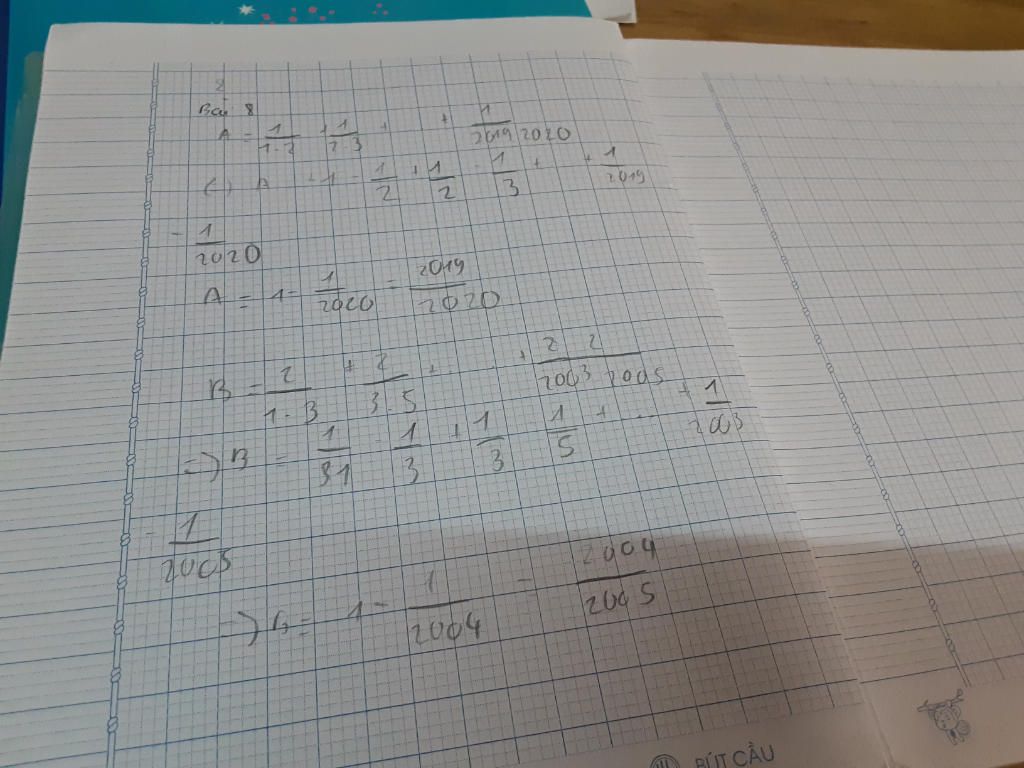 Bài 8
A = 1/1·2 + 1/2·3 + + 1/2019 2020
(-) A = 1 - 1/2 + 1/2 - 1/3 + + 1/2019
- 1/2020
A = 1 - 1/2020 = 2019/2020
B = 2/1·3 + 2/3·5 + ... + 2/2003 2005
=) B = 1/1 - 1/3 + 1/3 - 1/5 + ... + 1/2003
- 1/2005
=) B = 1 - 1/2004 = 2004/2005
BÚT CẦU